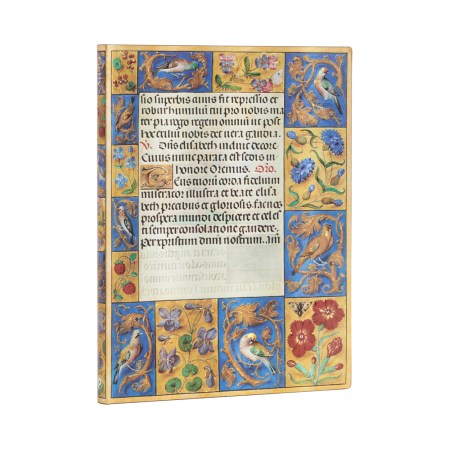 sio superbis cuius fit repressio et
robur humilium tui pro nobis ma
ter pia rego regem omnium ut post
hoc exilii nobis det uera gaudia.
V. Dñs elisabeth induit decore.
Cuius nunc parata est sedis in
honore Oremus. Oro.
Eus tuorum corda fidelium
miserator illustra et beate elisa
beth precibus et gloriosis. fac nos
prospera mundi despicere et celes
ti semper consolatione gaudere.
per xpristum dnni nostrum. am